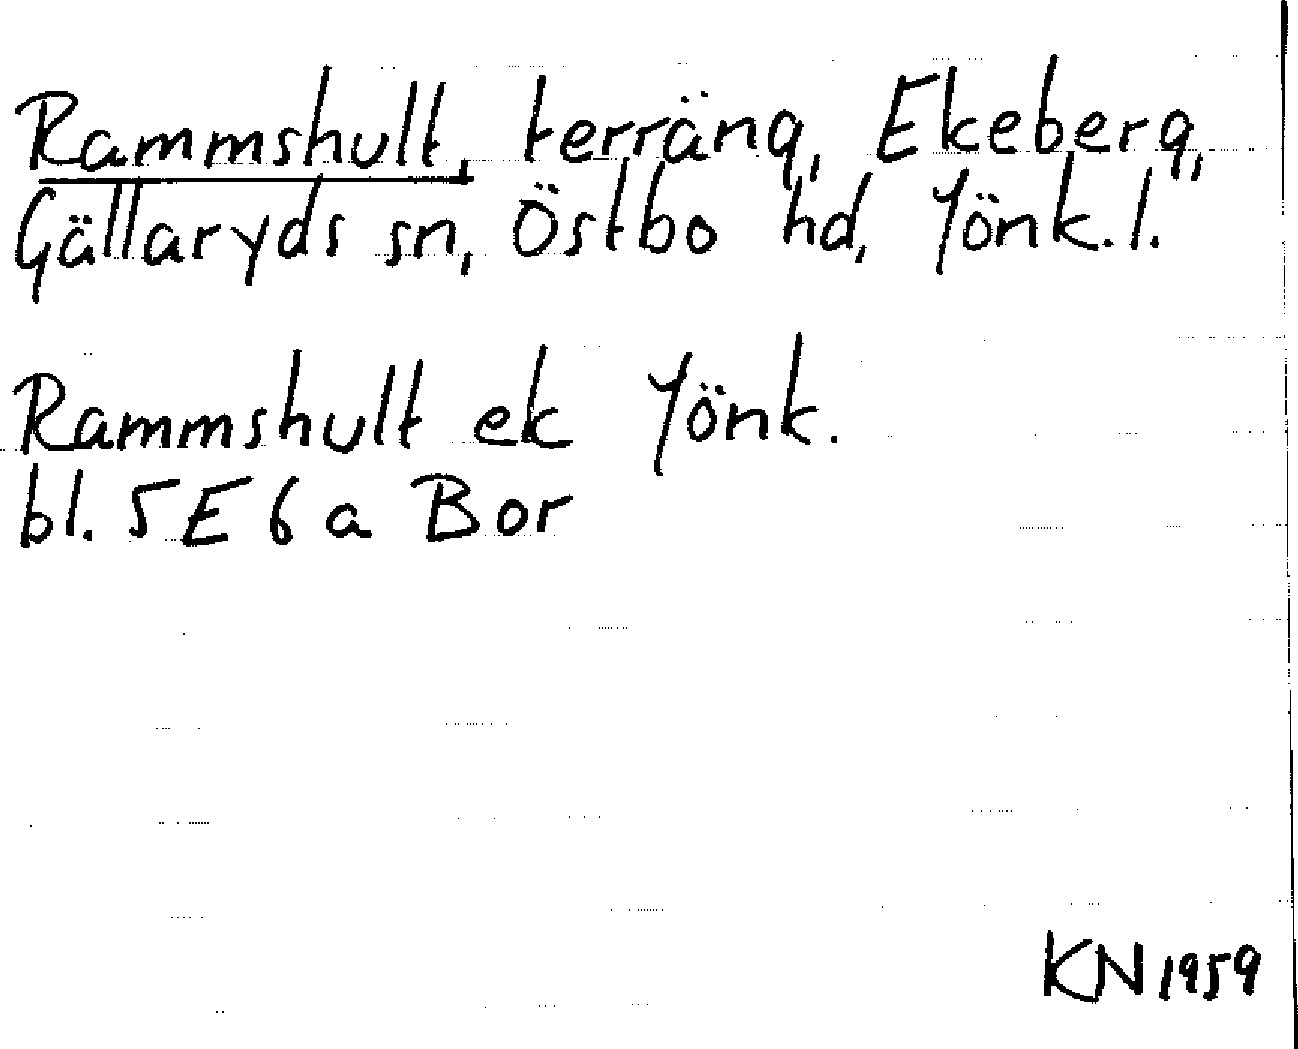 Rammshult, terräng, Ekeberg,
Gällaryds sn, Östbo hd, Jönk. l.
Rammshult ek Jönk.
bl. 5E6a Bor
KN 1959